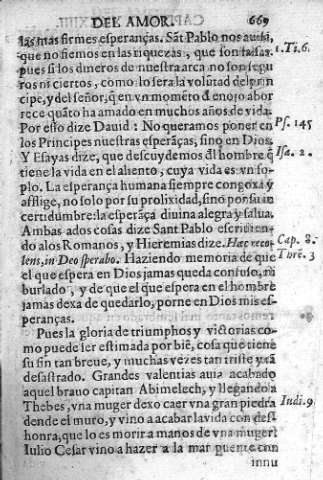 DEL AMOR. 669
las mas firmes esperanças. Sãt Pablo nos auisa,
que no fiemos en las riquezas, que son falsas. 1.Ti.6.
pues si los dineros de nuestra arca no son segu
ros ni ciertos, como lo sera la volũtad del prin
cipe, y del señor, q̃ en vn momẽto d enojo abor
rece quãto ha amado en muchos años de vida.
Por esto dize Dauid: No queramos poner en Ps. 145
los Principes nuestras esperãças, sino en Dios.
Y Esayas dize, que descuydemos dl hombre q̃ Isa. 2.
tiene la vida en el aliento, cuya vida es vn so-
plo. La esperança humana siempre congoxa y
aflige, no solo por su prolixidad, sino por su in
certudumbre: la esperãça diuina alegra y salua.
Ambas ados cosas dize Sant Pablo escriuien-
do alos Romanos, y Hieremias dize. Hæc reco Cap. 8.
lens, in Deo sperabo. Haziendo memoria de que Thre. 3
el que espera en Dios jamas queda confuso, ni
burlado, y de que el que espera en el hombre
jamas dexa de quedarlo, porne en Dios mis es-
peranças.
Pues la gloria de triumphos y victorias co-
mo puede ser estimada por biẽ, cosa que tiene
su fin tan breue, y muchas vezes tan triste y tã
desastrado. Grandes valentias auia acabado
aquel brauo capitan Abimelech, y llegando a
Thebes, vna muger dexo caer vna gran piedra Iudi.9
dende el muro, y vino a acabar la vida con des-
honra, que lo es morir a manos de vna muger.
Iulio Cesar vino a hazer a la mar puente con
innu